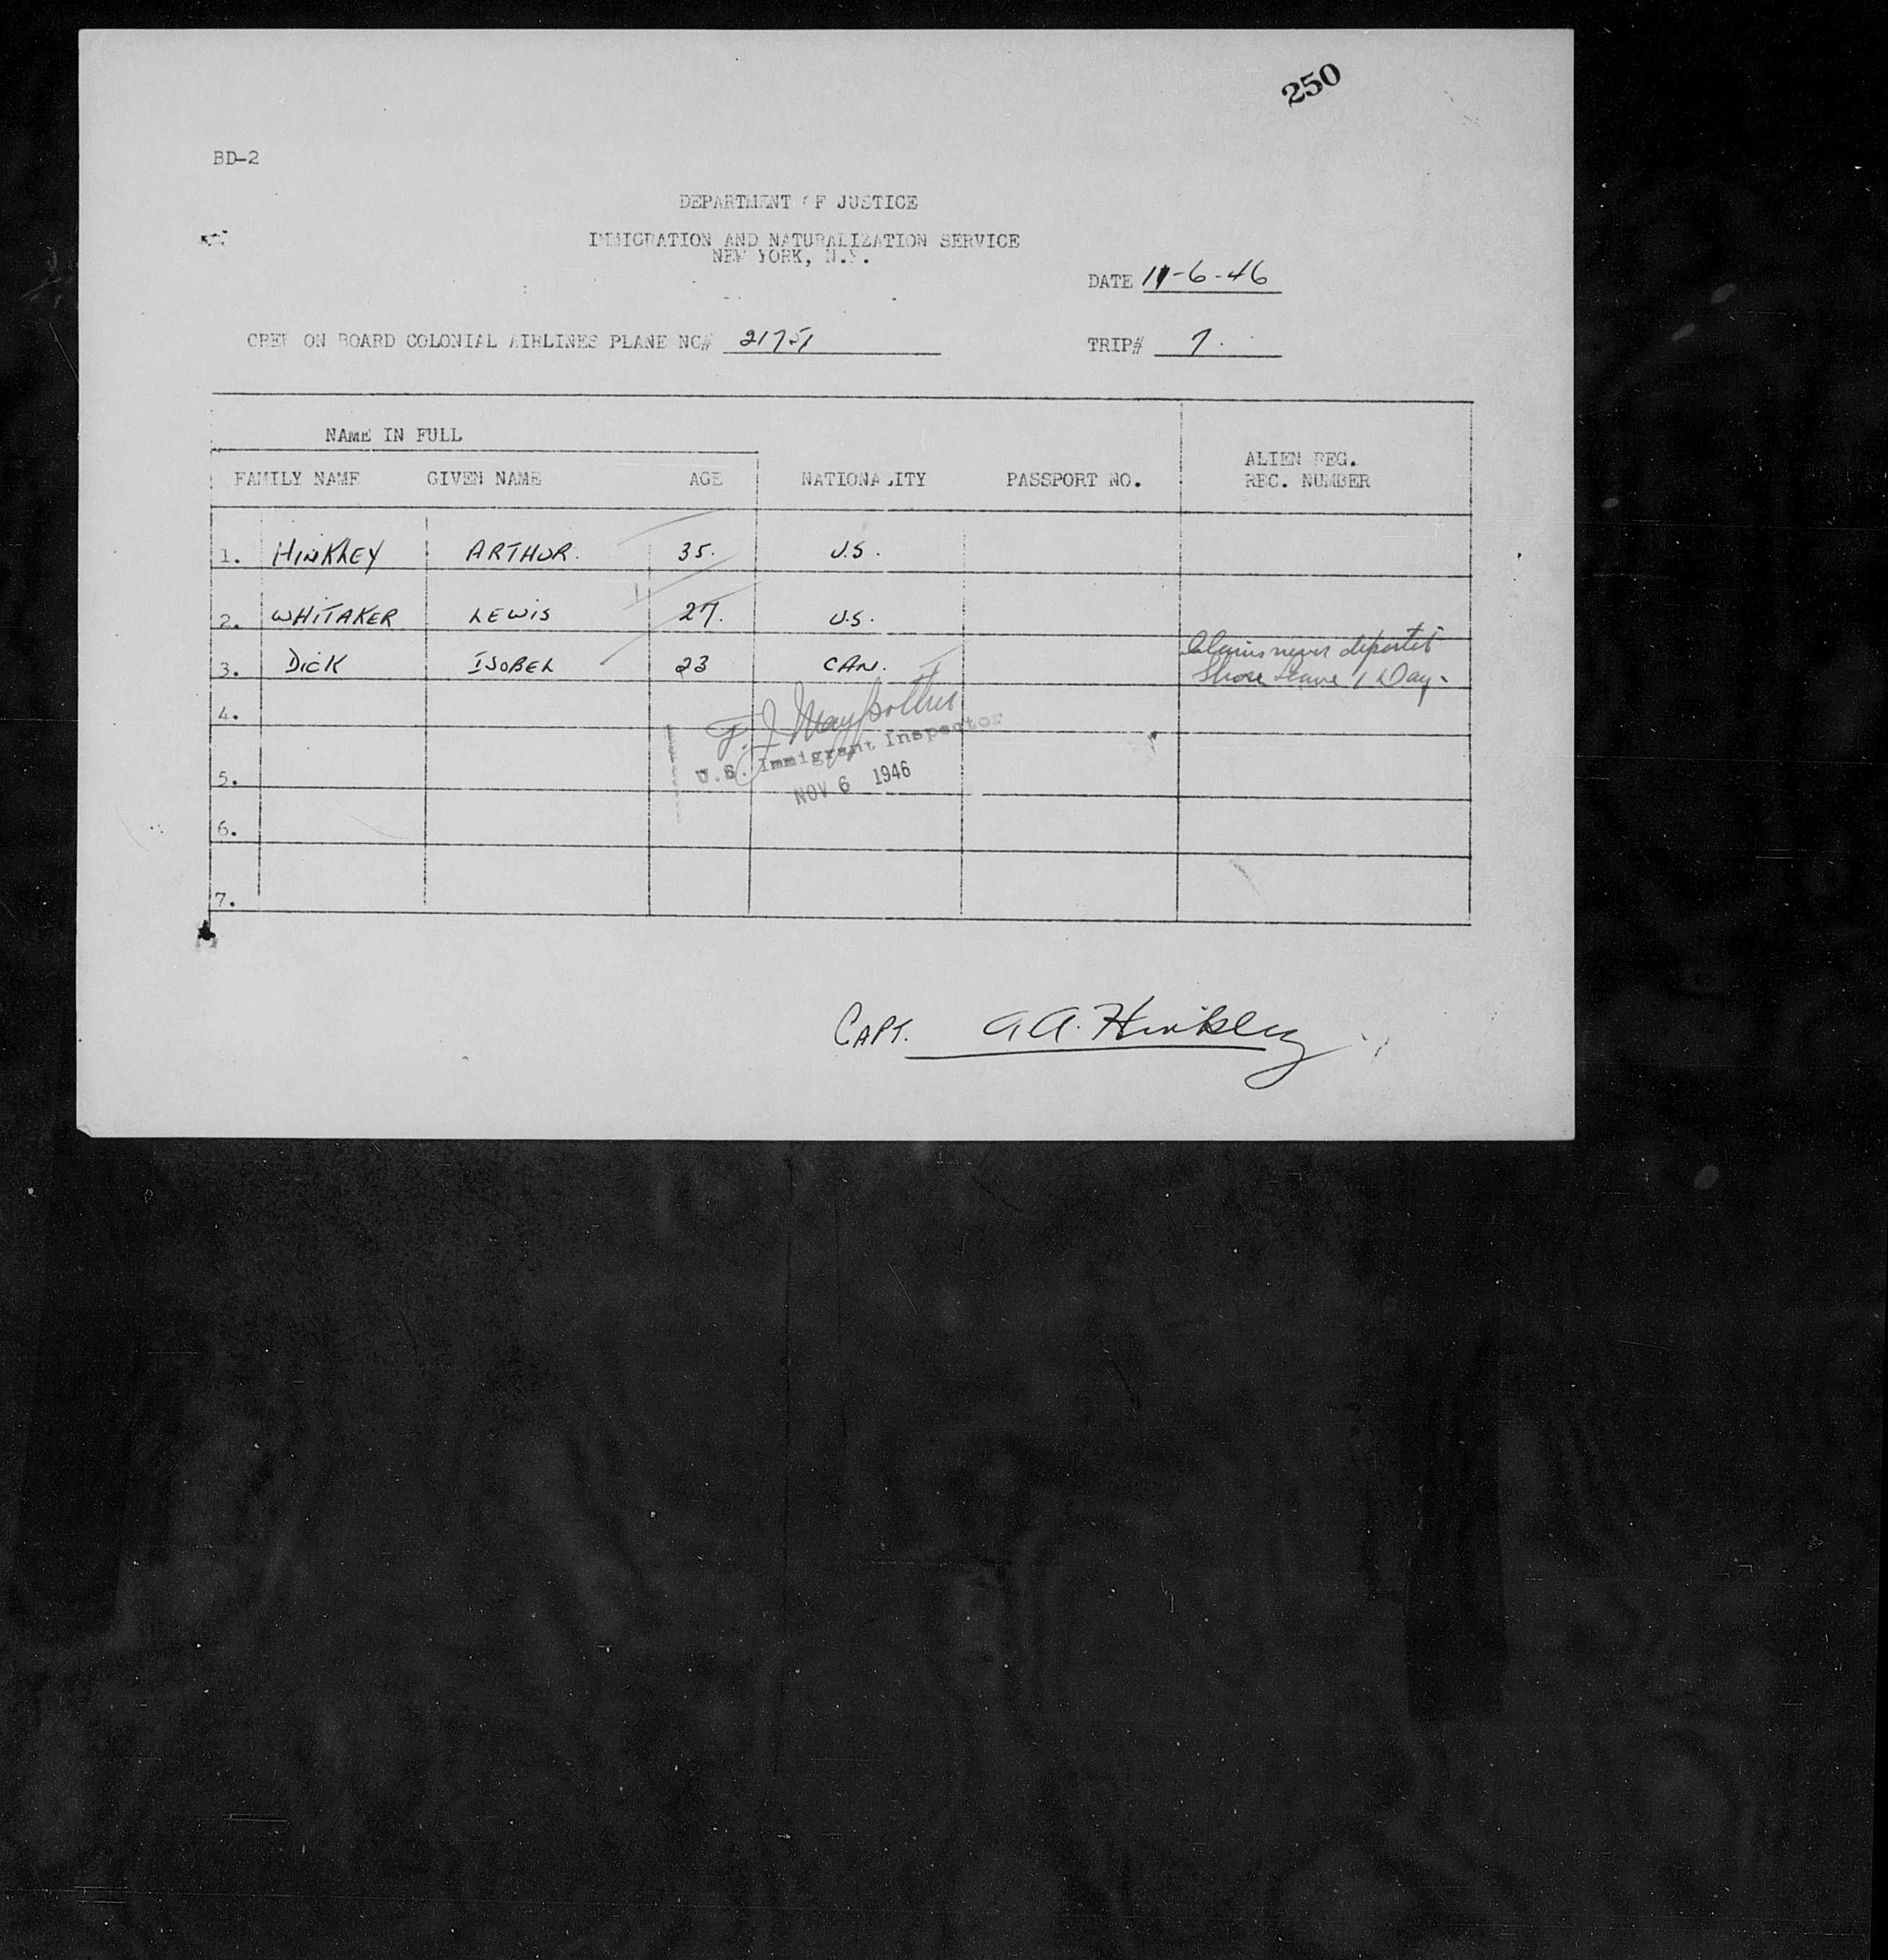 250
BD-2
DEPARTMENT OF JUSTICE
IMMIGRATION AND NATURALIZATION SERVICE
NEW YORK, N.Y.
DATE 11-6-46
CREW ON BOARD COLONIAL AIRLINES PLANE NC# 21751
TRIP# 7.
NAME IN FULL
FAMILY NAME GIVEN NAME AGE NATIONALITY PASSPORT NO. ALIEN REG.
REC. NUMBER
1. HINKLEY ARTHUR. 35. U.S.
2. WHITAKER LEWIS 27. U.S.
3. DICK ISOBEL 23 CAN. Claims never deported
Shore Leave 1 Day.
4.
F. J.
U.S. Immigrant Inspector
5.
NOV 6 1946
6.
7.
CAPT. A A. Hinkley